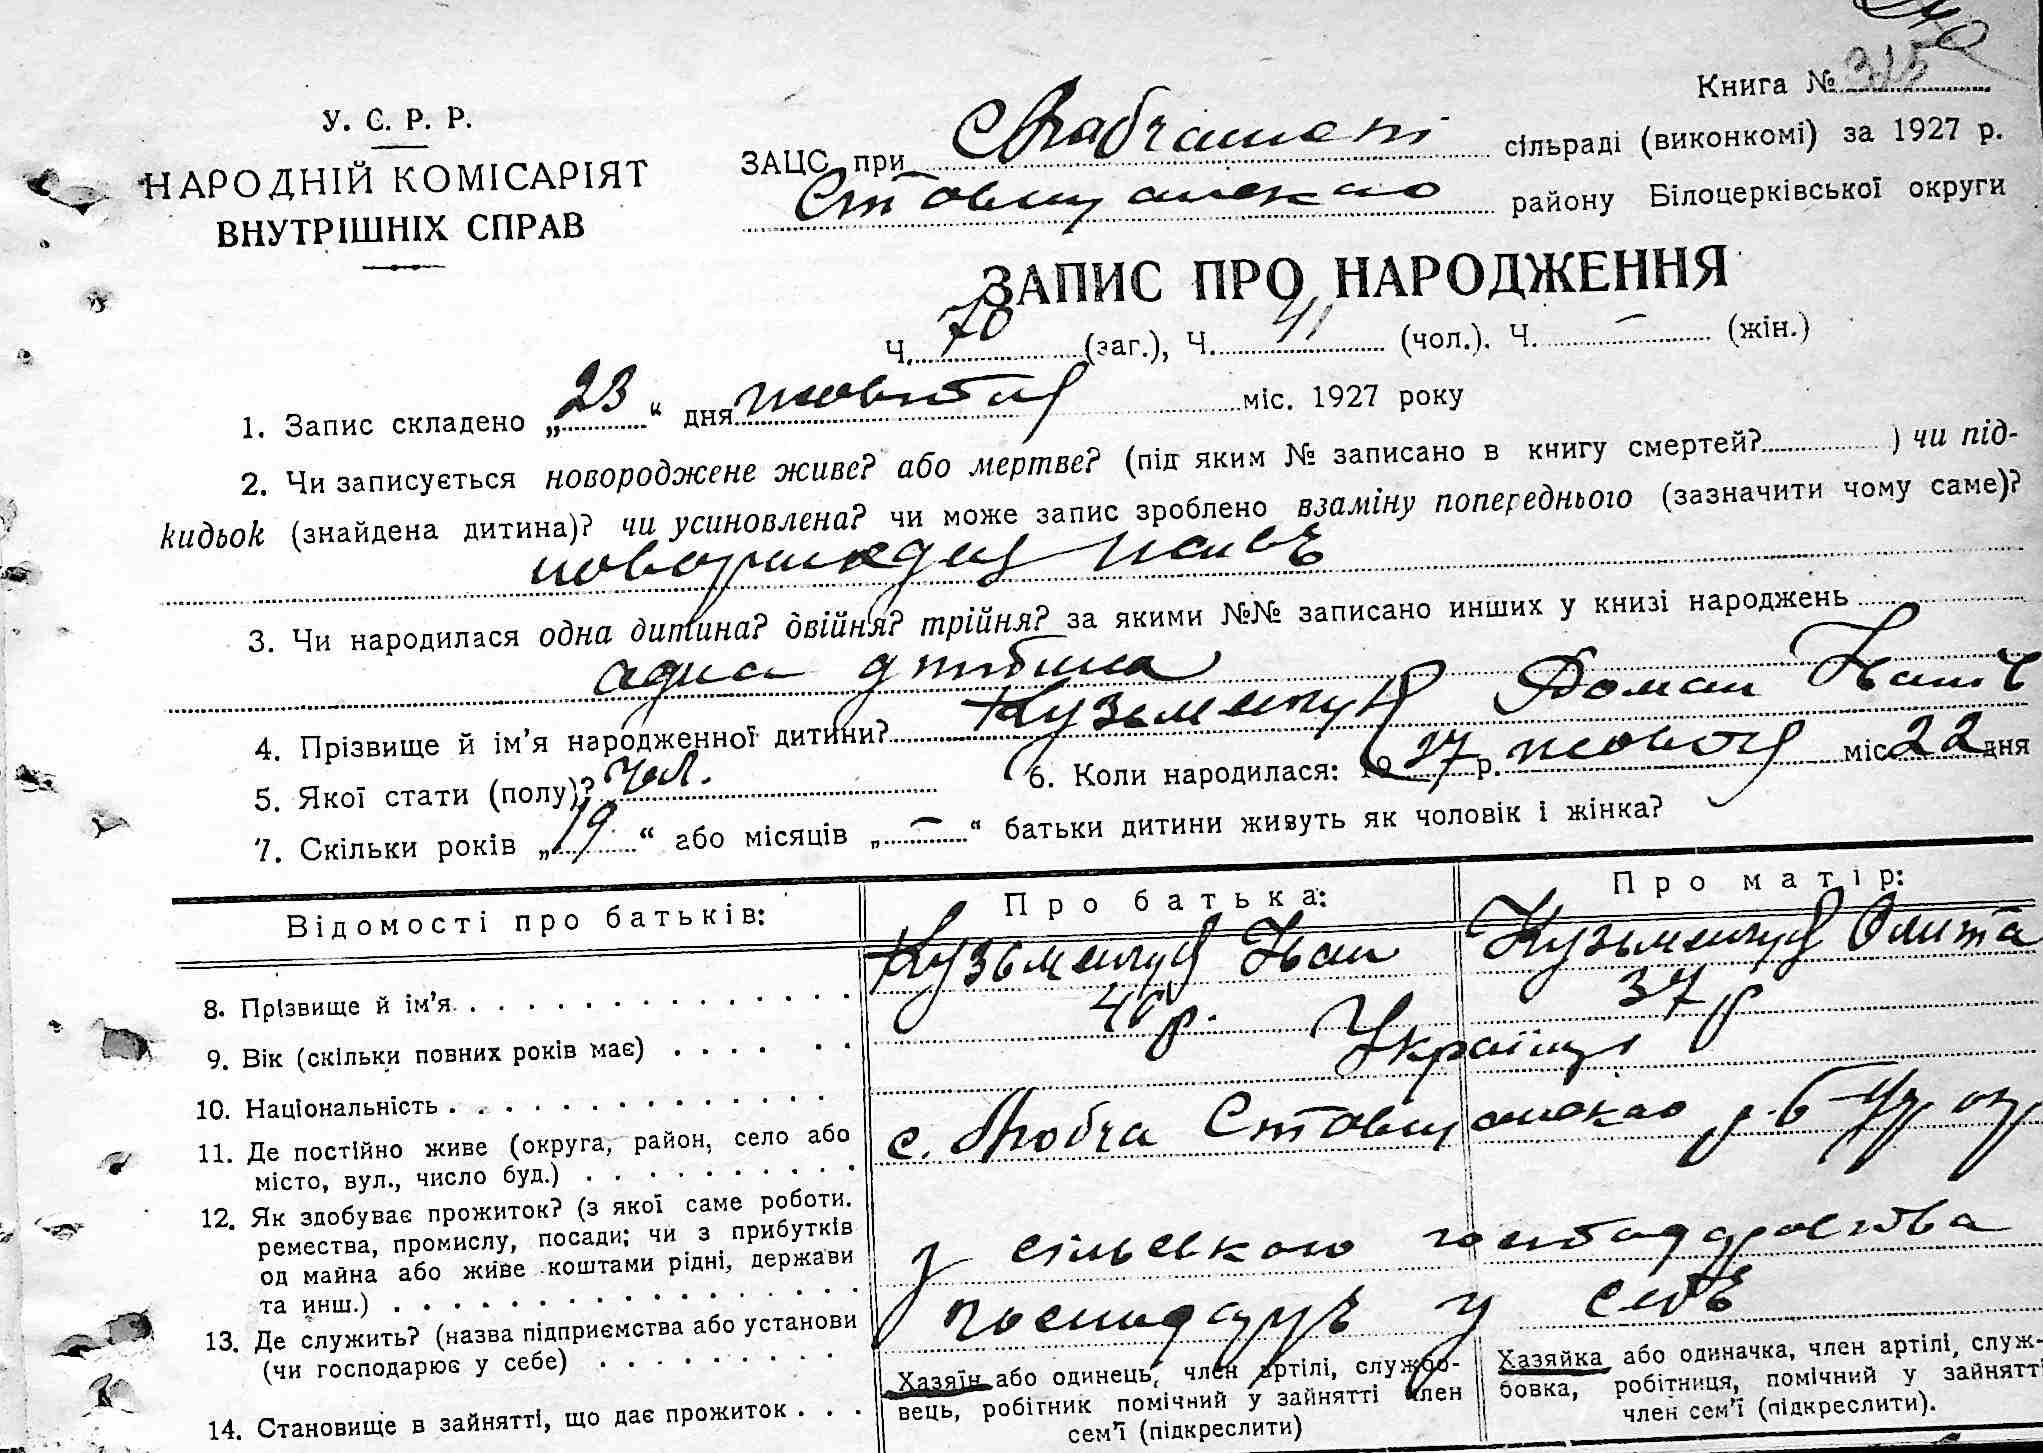 Книга № 315
У. С. Р. Р.
НАРОДНІЙ КОМІСАРІЯТ
ВНУТРІШНІХ СПРАВ
ЗАЦС при сільраді (виконкомі) за 1927 р.
Ставищансько району Білоцерківської округи
ЗАПИС ПРО НАРОДЖЕННЯ
Ч. 70 (заг.), Ч. 41 (чол.). Ч. – (жін.)
1. Запис складено „23“ дня жовтня міс. 1927 року
2. Чи записується новороджене живе? або мертве? (під яким № записано в книгу смертей? ) чи під-
кидьок (знайдена дитина)? чи усиновлена? чи може запис зроблено взаміну попереднього (зазначити чому саме)?
3. Чи народилася одна дитина? двійня? трійня? за якими №№ записано инших у книзі народжень
одна дитина
4. Прізвище й ім'я народженної дитини? Кузьменчук Роман
5. Якої стати (полу)? чол. 6. Коли народилася: 1927 р. жовтня міс. 22 дня
7. Скільки років „19“ або місяців „–“ батьки дитини живуть як чоловік і жінка?
Відомості про батьків: Про батька: Про матір:
8. Прізвище й ім'я Кузьменчук Іван Кузьменчук
9. Вік (скільки повних років має) 40 р. 37 р
10. Національність Українці
11. Де постійно живе (округа, район, село або
місто, вул., число буд.) с. Ставищансько р.
12. Як здобуває прожиток? (з якої саме роботи.
ремества, промислу, посади; чи з прибутків
од майна або живе коштами рідні, держави
та инш.) з сільського господарства
13. Де служить? (назва підприємства або установи
(чи господарює у себе) у себъ
14. Становище в зайнятті, що дає прожиток
Хазяїн або одинець, член артілі, службо-
вець, робітник помічний у зайнятті член
сем'ї (підкреслити)
Хазяйка або одиначка, член артілі, служ-
бовка, робітниця, помічний у зайнятті
член сем'ї (підкреслити).